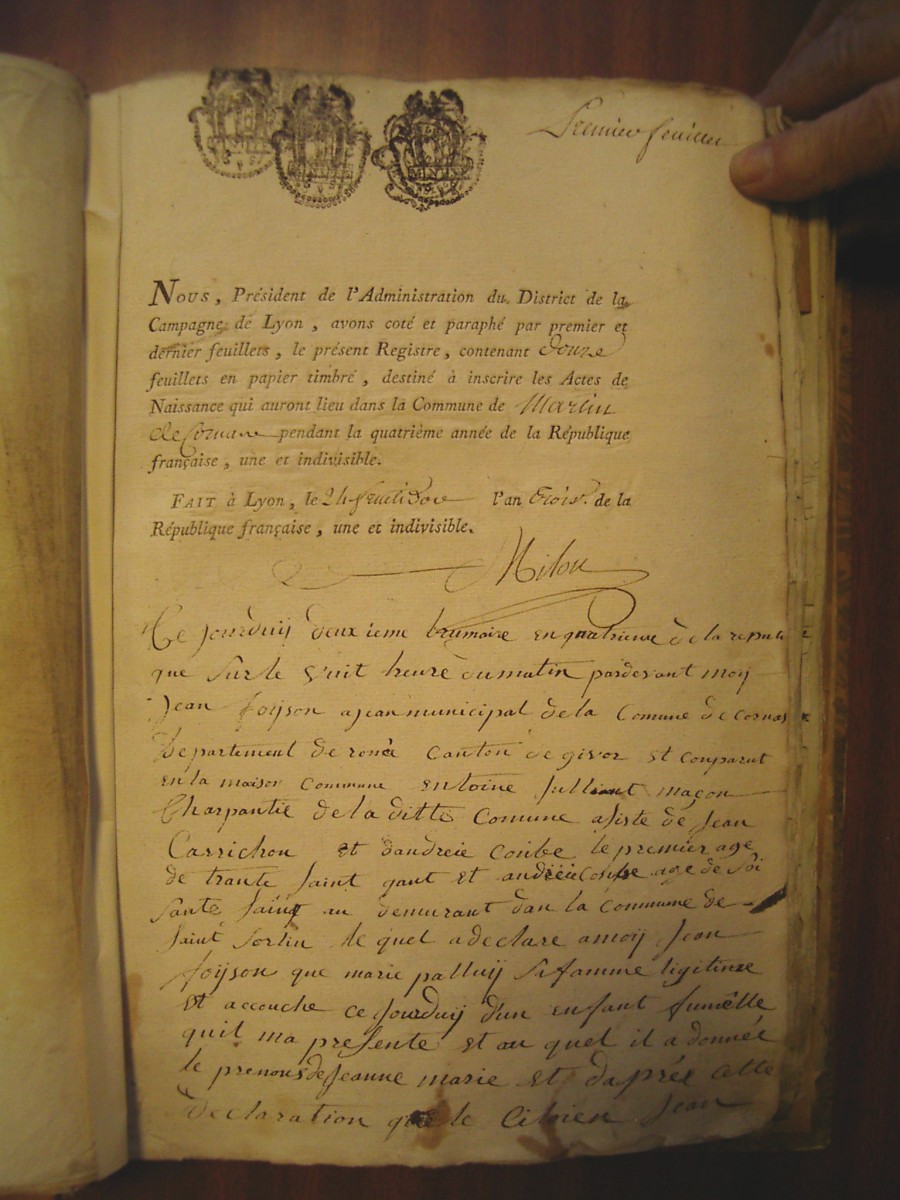 Premier feuillet
Nous, Président de l'Administration du District de la
Campagne de Lyon, avons coté et paraphé par premier et
dernier feuillets, le présent Registre, contenant douze
feuillets en papier timbré, destiné à inscrire les Actes de
Naissance qui auront lieu dans la Commune de Martin
de Cornas pendant la quatrième année de la République
française, une et indivisible.
Fait à Lyon, le 24 fructidore l'an trois.e de la
République française, une et indivisible.
Ce jourduij deuxieme brumaire en quatrieme de la republi
que sur le vuit heure du matin pardevant moij
Jean foijson ajean municipal de la Commune de cornas
Departement de rone Canton de givor est conparut
en la maison commune entoine Julliant maçon
Charpantié de la ditte Comune asisté de Jean
Carrichon et dandreie Combe le premier age
de trante saint gant et andreie Combe age de soi
sante saint an demurant dan la commune de
saint sorlin le quel a declare a moij Jean
foijson que marie palluij sa famme ligitime
est accouche ce jourduij dun enfant fumelle
quil ma presente et au quel il a donneé
le prenons de Jeanne marie et daprée cette
declaration que le Citoien Jean